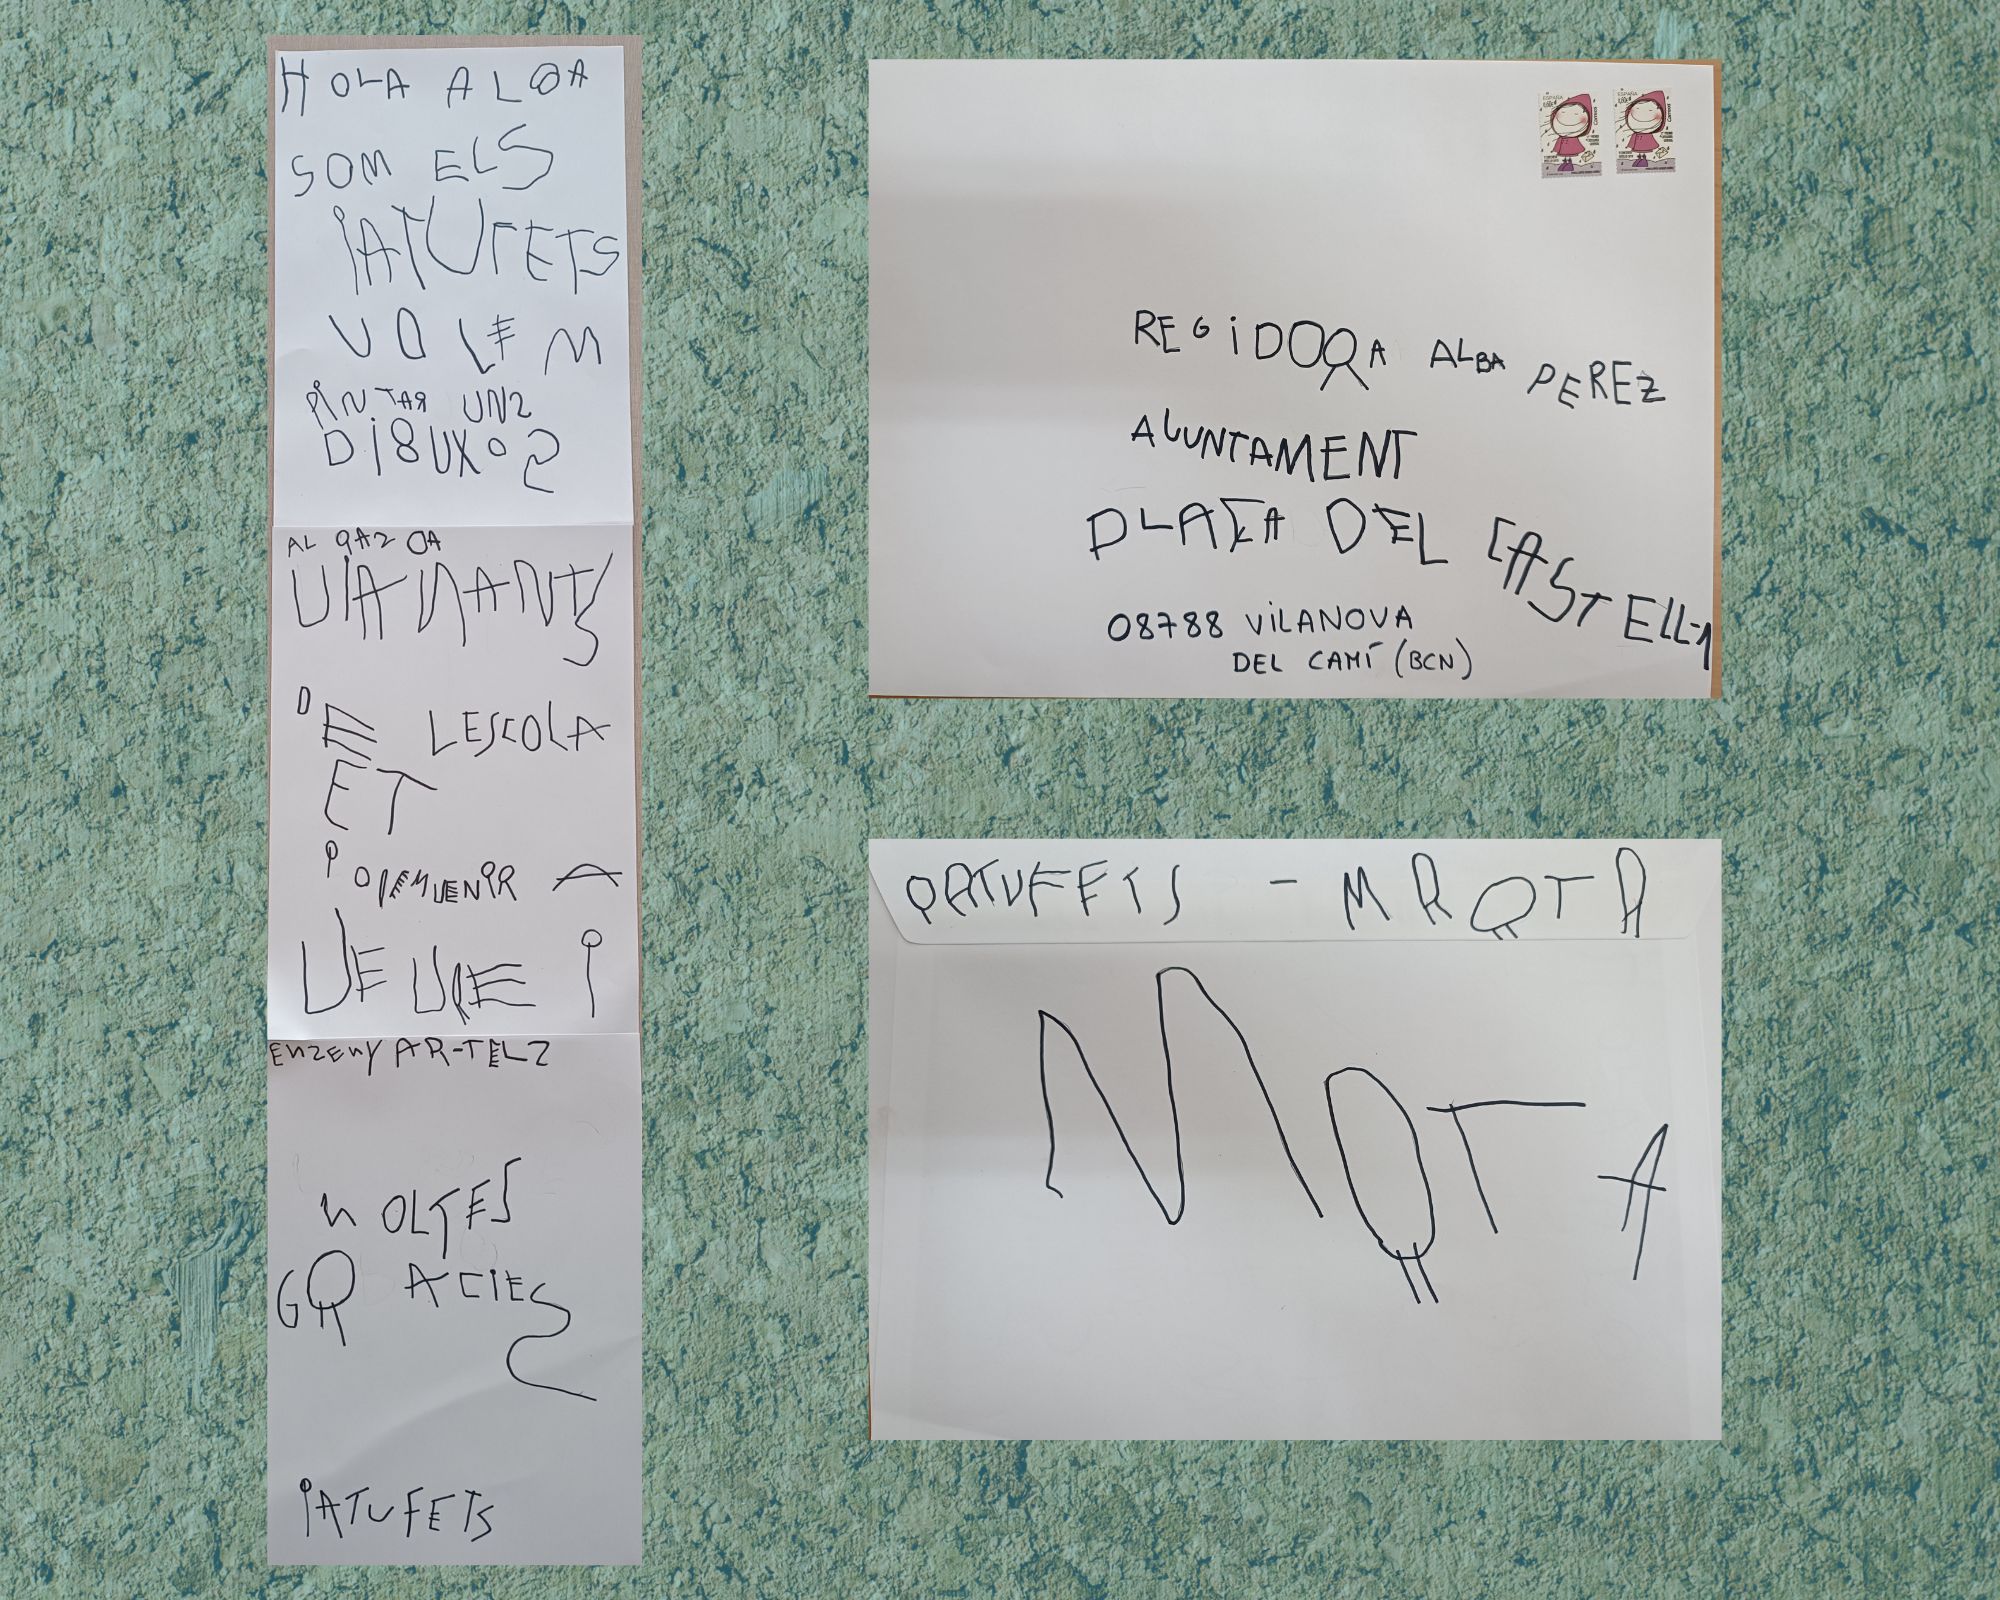 HOLA ALBA
SOM ELS
PATUFETS
VOLEM
PINTAR UNS
DIBUXOS
AL PAS DA
VIANANTS
DE LESCOLA
ET
PODEM VENIR A
VEURE I
ENSENYAR-TELS
MOLTES
GRACIES
PATUFETS
REGIDORA ALBA PEREZ
AJUNTAMENT
PLAÇA DEL CASTELL-1
08788 VILANOVA
DEL CAMÍ (BCN)
PATUFETS - MARTA
MARTA